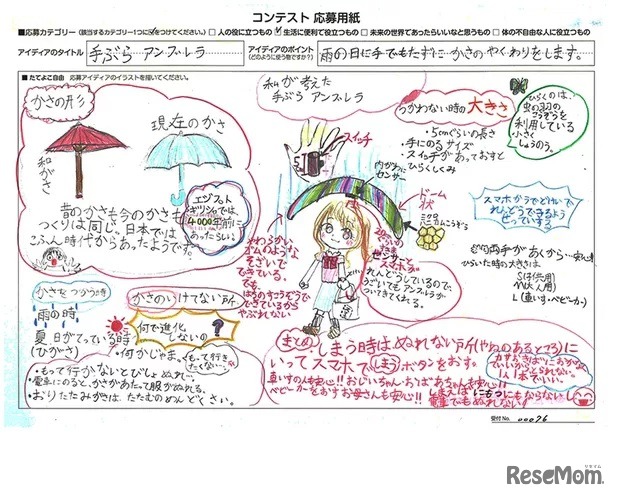 コンテスト 応募用紙
■応募カテゴリー（該当するカテゴリー1つに✓をつけてください。） □人の役に立つもの ☑生活に便利で役立つもの □未来の世界であったらいいなと思うもの □体の不自由な人に役立つもの
アイディアのタイトル 手ぶら アンブレラ
アイディアのポイント（どのように使う物ですか？） 雨の日に手でもたずに かさの やくわりをします。
■たてよこ自由 応募アイディアのイラストを描いてください。
かさの形
和がさ
現在のかさ
昔のかさも今のかさも
つくりは同じ、日本では
こふん時代からあったようです。
エジプト
ギリシャでは、
4000年前に
あったらしい。
私が考えた
手ぶら アンブレラ
スイッチ
内がわに
センサー
つかわない時の大きさ
・5cmぐらいの長さ
・手にのるサイズ
・スイッチがあっておすと
ひらくしくみ
ひらくのは、
虫の羽の
こうぞうを
利用している
小さく
しゅうのう。
ドーム
状
ミクロ
ハニカムこうぞう
スマホからでどれいで
れんどうできるよう
になっている
両手があくから
ひらいた時の大きさは
S(子供用)
M(大人用)
L(車いす・ベビーカー)
やわらかい
ゴムのような
そざいで
できている。
でも、
はねのすこうぞうで
できているから
やぶれない
センサーと
スマホが
れんどうしているので、
うごいてもアンブレラが
ついてきてくれる。
かさをつかう時
雨の時
夏 日がてっている時
(ひがさ)
かさのいけてない所
何で進化
しないの?
・何かじゃま。(もって行き
たくない…)
・もって行かないとびしょぬれ…
・電車にのると、かさがあたって服がぬれる。
・おりたたみがさは、たたむのめんどくさい。
まとめ しまう時はぬれない所(やねのあるところ)に
いって スマホで しまう ボタンをおす。
車いすの人も安心!! おじいちゃん・おばあちゃんも安心!!
ベビーカーをおすお母さんも安心!! しまえばにもつにもならないし
電車でもぬれない!
1人1本でいい。
受付No. 00076
ReseMom.